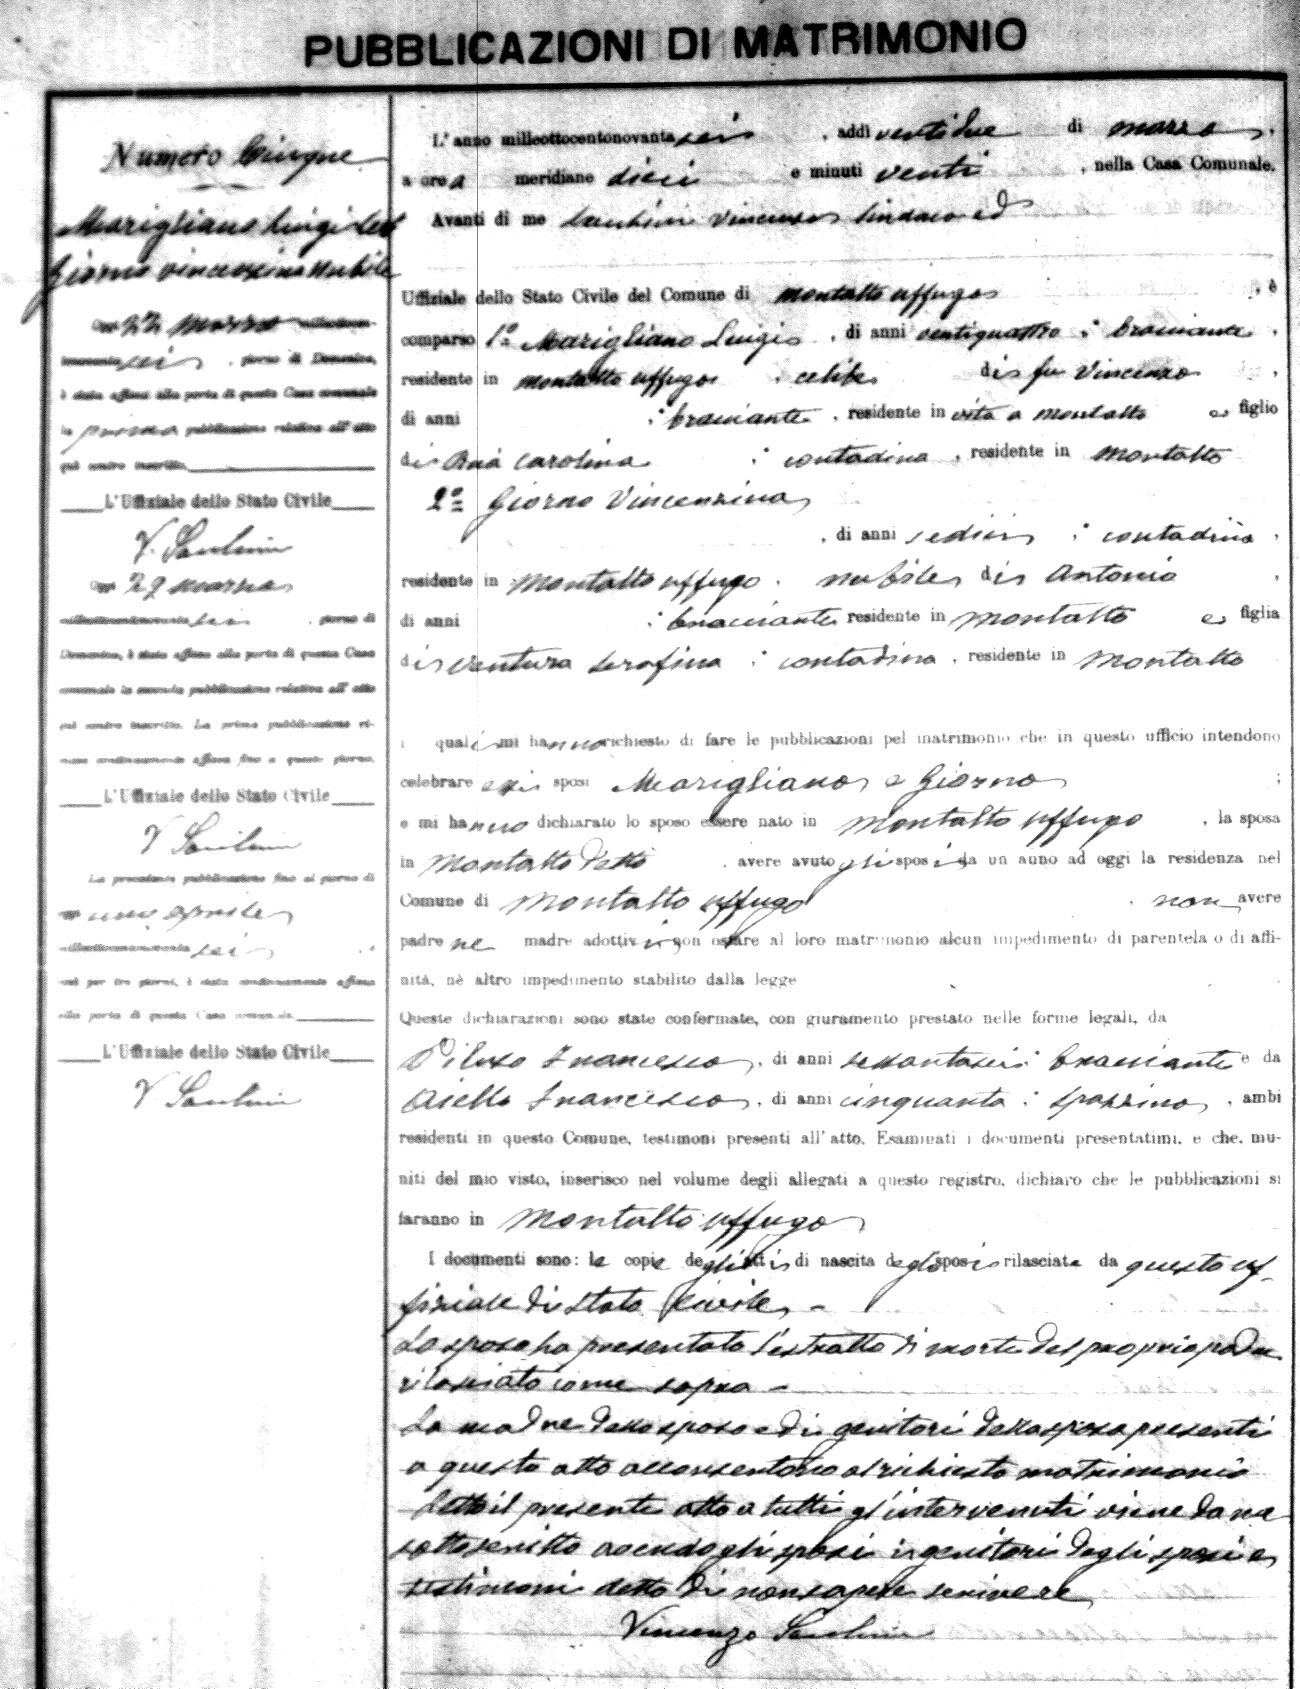 PUBBLICAZIONI DI MATRIMONIO
Numero Cinque
Marigliano Luigi
Giorno Vincenzina nubile
Oggi 22 marzo milleottocento-
novanta sei, giorno di Domenica,
è stata affissa alla porta di questa Casa comunale
la prima pubblicazione relativa all'atto
qui contro inscritto.
L'Uffiziale dello Stato Civile
V.
Oggi 29 marzo
milleottocentonovanta sei, giorno di
Domenica, è stata affissa alla porta di questa Casa
comunale la seconda pubblicazione relativa all'atto
qui contro inscritto. La prima pubblicazione ri-
mase continuamente affissa fino a questo giorno.
L'Uffiziale dello Stato Civile
V
La precedente pubblicazione fino al giorno di
oggi uno aprile
milleottocentonovanta sei e
cioè per tre giorni, è stata continuamente affissa
alla porta di questa Casa comunale.
L'Uffiziale dello Stato Civile
V
L'anno milleottocentonovanta sei, addì ventidue di marzo,
a ore a meridiane dieci e minuti venti, nella Casa Comunale.
Avanti di me Vincenzo Sindaco ed
Uffiziale dello Stato Civile del Comune di Montalto Uffugo, è
comparso 1º Marigliano Luigi, di anni ventiquattro, bracciante,
residente in Montalto Uffugo, celibe di fu Vincenzo,
di anni , bracciante, residente in vita a Montalto e figlio
di Carolina, contadina, residente in Montalto
2º Giorno Vincenzina
, di anni sedici, contadina,
residente in Montalto Uffugo, nubile di Antonio,
di anni , bracciante residente in Montalto e figlia
di Ventura Serafina, contadina, residente in Montalto
i quali mi hanno richiesto di fare le pubblicazioni pel matrimonio che in questo ufficio intendono
celebrare essi sposi Marigliano e Giorno;
e mi hanno dichiarato lo sposo essere nato in Montalto Uffugo, la sposa
in Montalto detto, avere avuto gli sposi da un anno ad oggi la residenza nel
Comune di Montalto Uffugo, non avere
padre ne madre adottivi non ostare al loro matrimonio alcun impedimento di parentela o di affi-
nità, nè altro impedimento stabilito dalla legge
Queste dichiarazioni sono state confermate, con giuramento prestato nelle forme legali, da
Piluso Francesco, di anni sessantasei, bracciante e da
Aiello Francesco, di anni cinquanta, spazzino, ambi
residenti in questo Comune, testimoni presenti all'atto. Esaminati i documenti presentatimi, e che, mu-
niti del mio visto, inserisco nel volume degli allegati a questo registro, dichiaro che le pubblicazioni si
faranno in Montalto Uffugo
I documenti sono: le copie degli atti di nascita degli sposi rilasciate da questo uf-
fiziale di stato civile.
Lo sposo ha presentato l'estratto di morte del proprio padre
rilasciato come sopra
La madre dello sposo e di genitori della sposa presenti
a questo atto acconsentono al richiesto matrimonio
Letto il presente atto a tutti gl'intervenuti viene da me
sottoscritto avendo gli sposi i genitori degli sposi e
testimoni detto di non sapere scrivere
Vincenzo